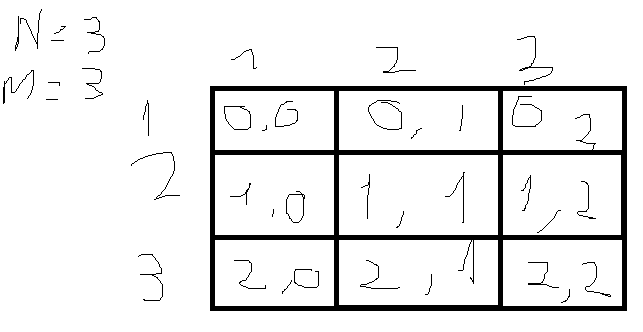 N = 3
M = 3
1 2 3
1 0,0 0,1 0 2
2 1,0 1,1 1,2
3 2,0 2,1 2,2